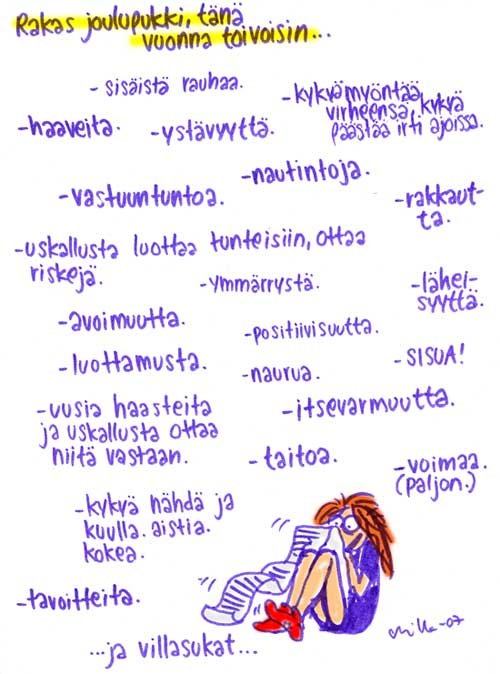 Rakas joulupukki, tänä
vuonna toivoisin...
- sisäistä rauhaa.
- kykyä myöntää
virheensä, kykyä
päästää irti ajoissa.
- haaveita.
- ystävyyttä.
- nautintoja.
- vastuuntuntoa.
- rakkaut-
ta.
- uskallusta luottaa tunteisiin, ottaa
riskejä.
- ymmärrystä.
- lähei-
syyttä.
- avoimuutta.
- positiivisuutta.
- luottamusta.
- naurua.
- SISUA!
- uusia haasteita
ja uskallusta ottaa
niitä vastaan.
- itsevarmuutta.
- taitoa.
- voimaa.
(paljon.)
- kykyä nähdä ja
kuulla. aistia.
kokea.
- tavoitteita.
...ja villasukat...
-07